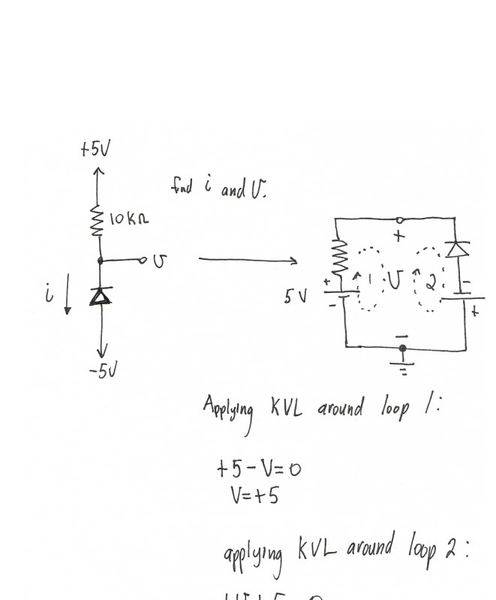 +5V
find i and V.
10KΩ
V
i
-5V
+
+ 1 V 2 -
5V
- +
-
Applying KVL around loop 1:
+5-V=0
V=+5
applying KVL around loop 2: